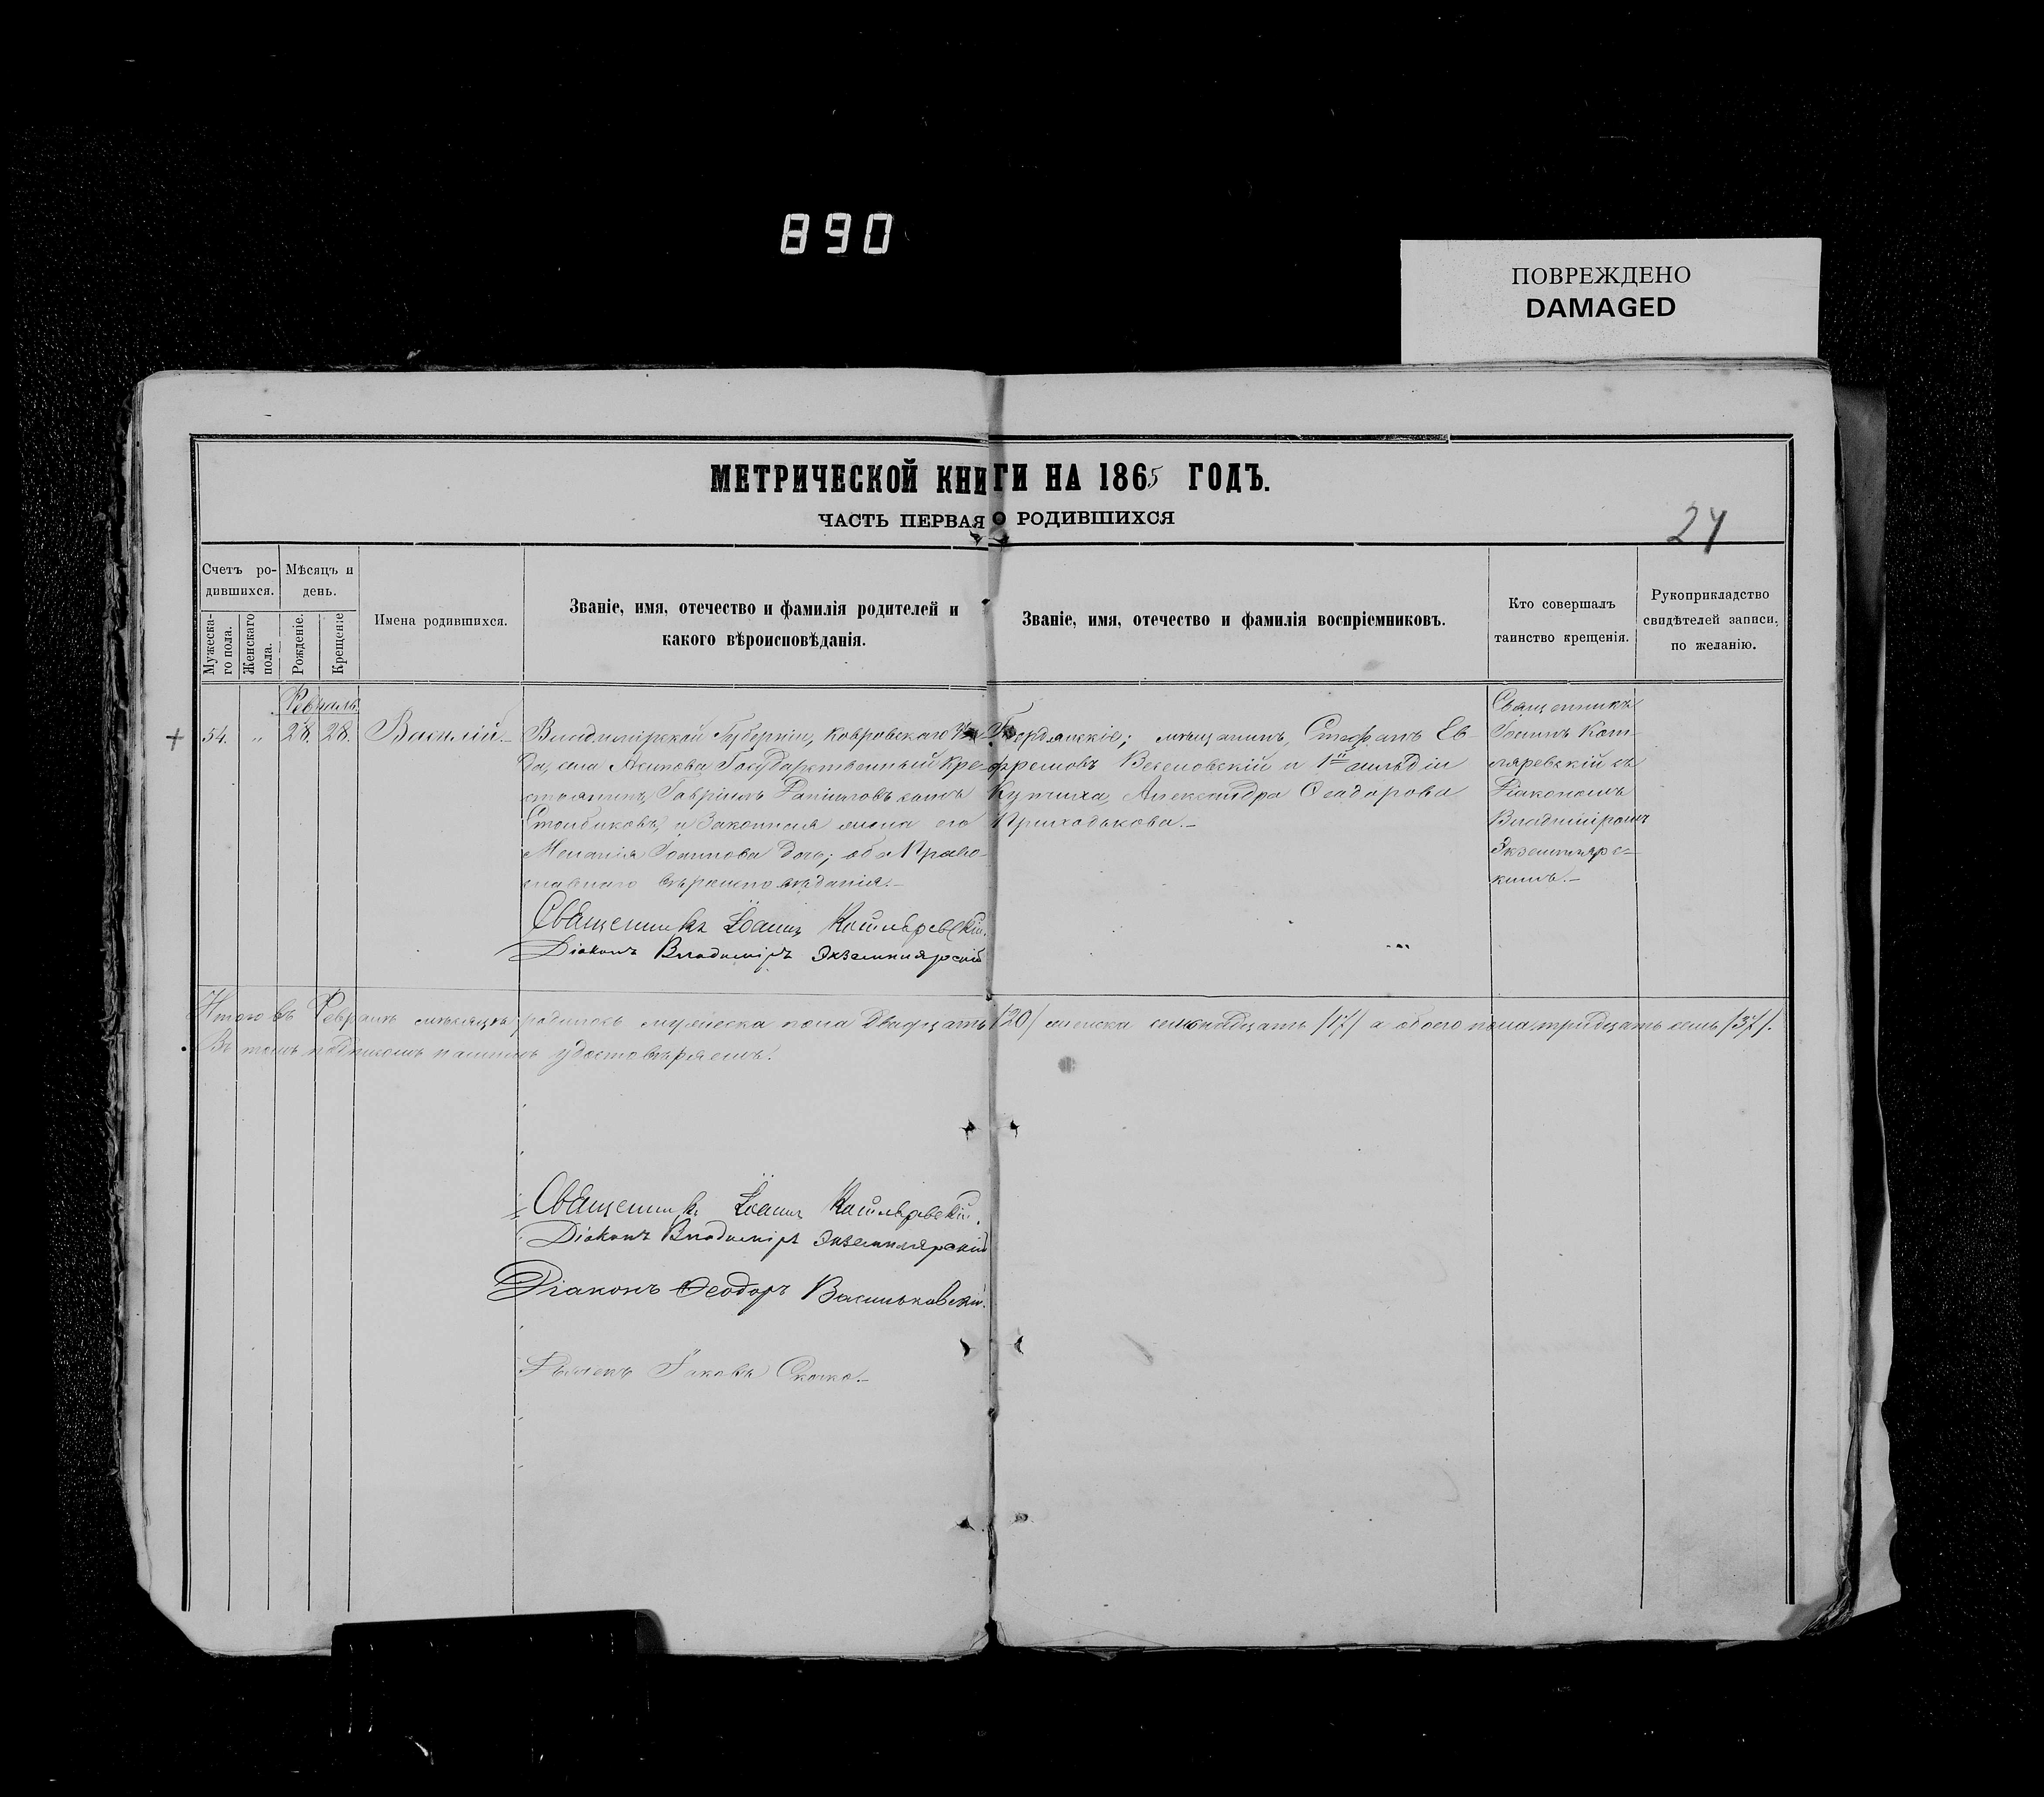 890
ПОВРЕЖДЕНО
DAMAGED
МЕТРИЧЕСКОЙ КНИГИ НА 1865 ГОДЪ.
ЧАСТЬ ПЕРВАЯ О РОДИВШИХСЯ
24
Счетъ ро-
дившихся.
Мужеска-
го пола.
Женскаго
пола.
Мѣсяцъ и
день.
Рожденіе.
Крещеніе
Имена родившихся.
Званіе, имя, отечество и фамилія родителей и
какого вѣроисповѣданія.
Званіе, имя, отечество и фамилія воспріемниковъ.
Кто совершалъ
таинство крещенія.
Рукоприкладство
свидѣтелей записи,
по желанію.
Февраль
+ 54. „ 28. 28. Василій.
Владимірской Губерніи, Ковровскаго Уѣз-
да, села Государственный Кре-
стьянинъ, Гавріилъ Даніиловъ сынъ
Столбиковъ, и Законная жена его
Меланія Іоаннова дочь; оба Право-
славнаго вѣроисповѣданія.-
Священникъ Іоаннъ Котляревскій.
Діаконъ Владиміръ Экземплярскій
Бердянскіе; мѣщанинъ, Стефанъ Ев-
фремовъ и 1й гильдіи
Купчиха, Александра Ѳеодорова
Приходькова.-
Священникъ
Іоаннъ Кот-
ляревскій съ
Діакономъ
Владиміромъ
Экземпляре-
кимъ.-
Итого въ Февралѣ мѣсяцѣ родилось мужеска пола двадцать /20/ женска семнадцать /17/ а обоего пола тридцать семь /37/.
Въ томъ подписомъ нашимъ удостовѣряемъ.
Священникъ Іоаннъ Котляревскій.
Діаконъ Владиміръ Экземплярскій
Діаконъ Ѳеодоръ Васильковскій.
Дьячекъ Іаковъ